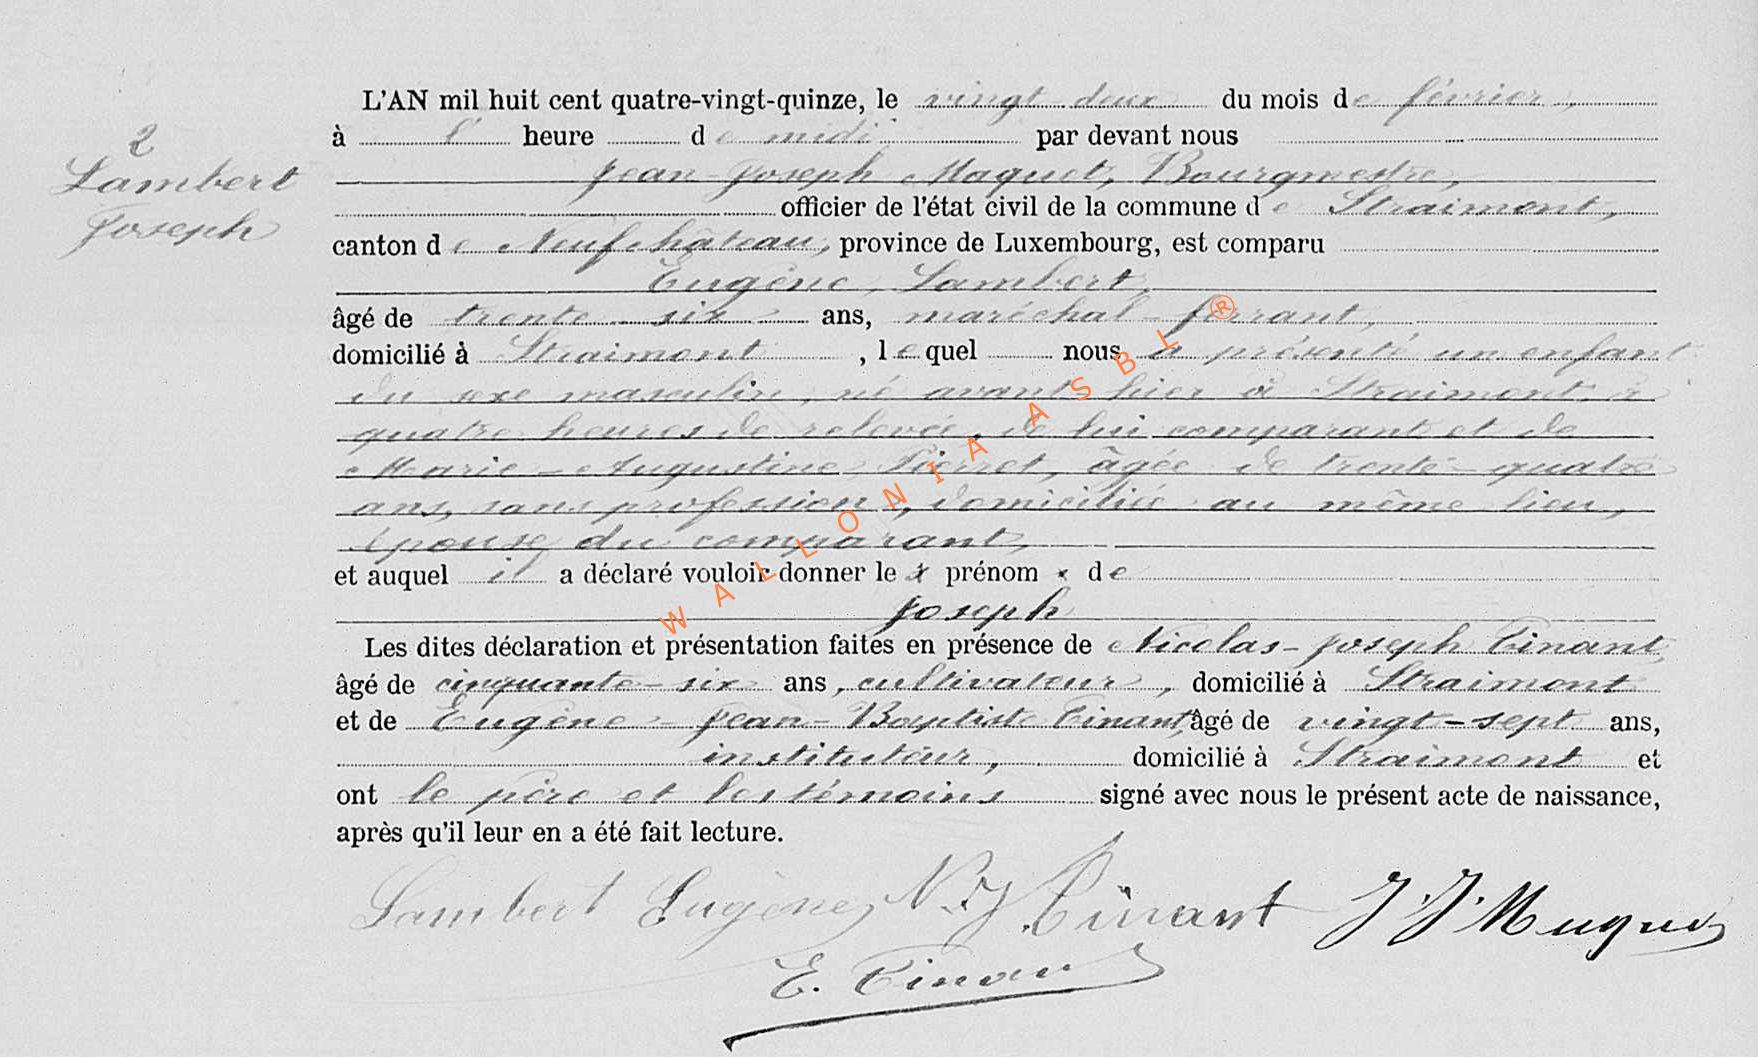 L'AN mil huit cent quatre-vingt-quinze, le vingt deux du mois de février,
à l' heure de midi par devant nous
2
Lambert
Joseph
Jean-Joseph Maquet, Bourgmestre,
officier de l'état civil de la commune de Straimont,
canton de Neufchâteau, province de Luxembourg, est comparu
Eugène Lambert,
âgé de trente six ans, maréchal-ferrant,
domicilié à Straimont, lequel nous a présenté un enfant
du sexe masculin, né avant hier à Straimont à
quatre heures de relevée, de lui comparant et de
Marie-Augustine Pierret, âgée de trente-quatre
ans, sans profession, domiciliée au même lieu,
épouse du comparant,
et auquel il a déclaré vouloir donner le x prénom x de
Joseph
Les dites déclaration et présentation faites en présence de Nicolas-Joseph Tinant,
âgé de cinquante-six ans, cultivateur, domicilié à Straimont
et de Eugène-Jean-Baptiste Tinant, âgé de vingt-sept ans,
instituteur, domicilié à Straimont et
ont le père et les témoins signé avec nous le présent acte de naissance,
après qu'il leur en a été fait lecture.
Lambert Eugène N. J. Tinant J. J. Maquet
E. Tinant
WALLONIA ASBL ®